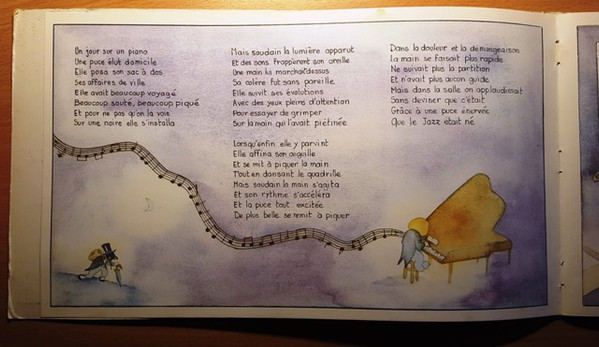 Un jour sur un piano
Une puce élut domicile
Elle posa son sac à dos
Ses affaires de ville
Elle avait beaucoup voyagé
Beaucoup sauté, beaucoup piqué
Et pour ne pas qu'on la voie
Sur une noire elle s'installa
Mais soudain la lumière apparut
Et des sons frappèrent son oreille
Une main lui marchait dessus
Sa colère fut sans pareille
Elle suivit ses évolutions
Avec des yeux pleins d'attention
Pour essayer de grimper
Sur la main qui l'avait piétinée
Lorsqu'enfin elle y parvint
Elle affina son aiguille
Et se mit à piquer la main
Tout en dansant le quadrille
Mais soudain la main s'agita
Et son rythme s'accéléra
Et la puce tout excitée
De plus belle se remit à piquer
Dans la douleur et la démangeaison
La main se faisait plus rapide
Ne suivait plus la partition
Et n'avait plus aucun guide
Mais dans la salle on applaudissait
Sans deviner que c'était
Grâce à une puce énervée
Que le Jazz était né